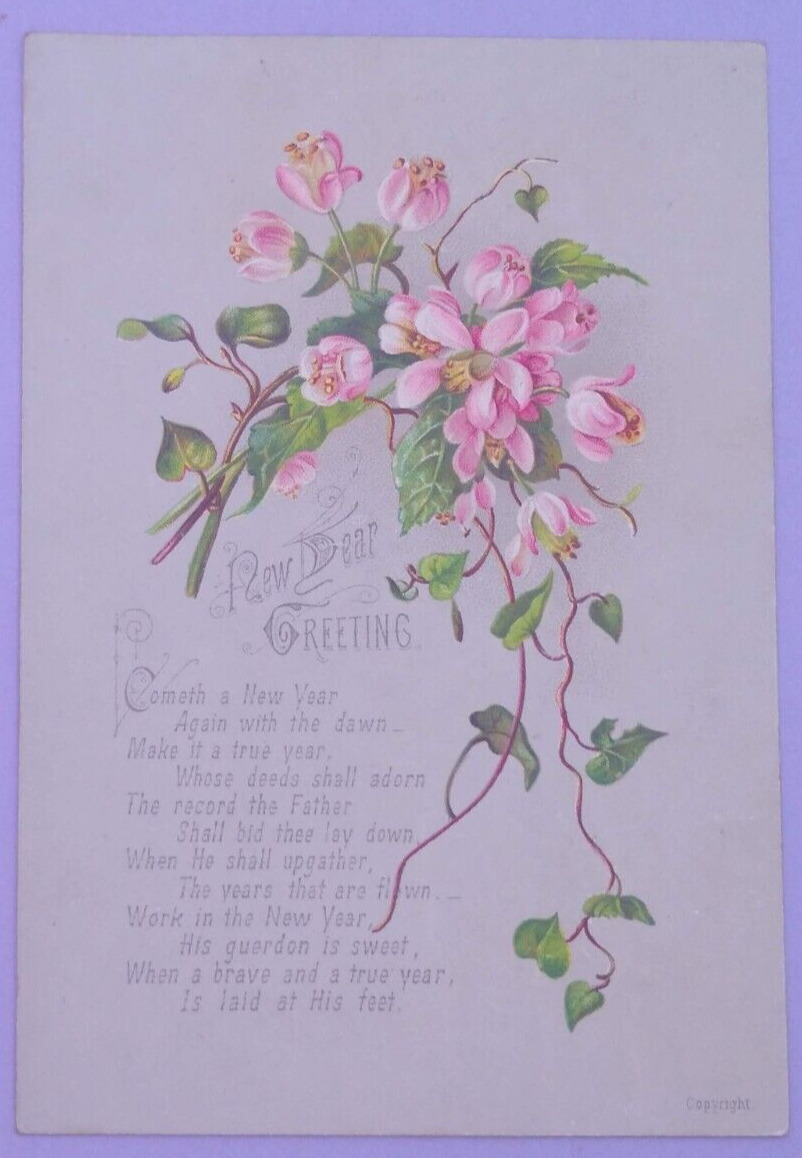 New Year
GREETING
Cometh a New Year
Again with the dawn_
Make it a true year,
Whose deeds shall adorn
The record the Father
Shall bid thee lay down,
When He shall upgather,
The years that are flown._
Work in the New Year,
His guerdon is sweet,
When a brave and a true year,
Is laid at His feet.
Copyright